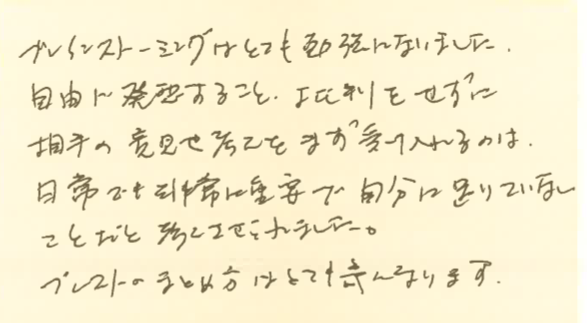 ブレインストーミングはとても勉強になりました.
自由に発想すること. 批判をせずに
相手の意見や考えをまず受け入れるのは.
日常でも非常に重要で自分に足りていない
ことだと考えさせられました。
ブレストのまとめ方はとても